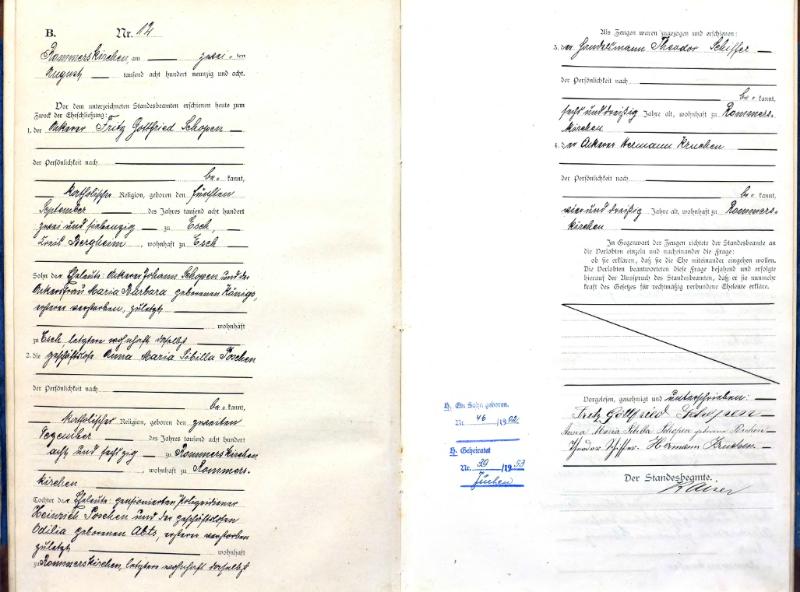 B. Nr. 12
Rommerskirchen, am zwei ten
August tausend acht hundert neunzig und acht.
Vor dem unterzeichneten Standesbeamten erschienen heute zum
Zweck der Eheschließung:
1. der Ackerer Fritz Gottfried Schopen
der Persönlichkeit nach
be kannt,
katholischer Religion, geboren den fünften
September des Jahres tausend acht hundert
zwei und siebenzig zu Esch,
Kreis Bergheim, wohnhaft zu Esch
Sohn der Eheleute: Ackerer Johann Schopen und der
Ackersfrau Maria Barbara geborenen Königs,
ersterer verstorben, zuletzt
wohnhaft
zu Esch, letztere wohnhaft daselbst
2. die geschäftslose Anna Maria Sibilla Poschen
der Persönlichkeit nach
be kannt,
katholischer Religion, geboren den zweiten
Dezember des Jahres tausend acht hundert
acht und sechzig zu Rommerskirchen,
, wohnhaft zu Rommers-
kirchen
Tochter der Eheleute: pensionierten Polizeidiener
Heinrich Poschen und der geschäftslosen
Odilia geborenen Abts, erstere verstorben
zuletzt wohnhaft
zu Rommerskirchen, letztere wohnhaft daselbst
Als Zeugen waren zugezogen und erschienen:
3. der Handelsmann Theodor Schiffer
der Persönlichkeit nach
be kannt,
sechs und dreißig Jahre alt, wohnhaft zu Rommers-
kirchen
4. der Ackerer Hermann Kruchen
der Persönlichkeit nach
be kannt,
vier und dreißig Jahre alt, wohnhaft zu Rommers-
kirchen
In Gegenwart der Zeugen richtete der Standesbeamte an
die Verlobten einzeln und nacheinander die Frage:
ob sie erklären, daß sie die Ehe miteinander eingehen wollen.
Die Verlobten beantworteten diese Frage bejahend und erfolgte
hierauf der Ausspruch des Standesbeamten, daß er sie nunmehr
kraft des Gesetzes für rechtmäßig verbundene Eheleute erkläre.
Vorgelesen, genehmigt und unterschrieben:
Fritz Gottfried Schopen
Anna Maria Sibilla Schopen geborene Poschen
Theodor Schiffer. Hermann Kruchen
Der Standesbeamte.
Kaiser
H. Ein Sohn geboren.
Nr. 46 /1902
H. Geheiratet
Nr. /1953
Jüchen